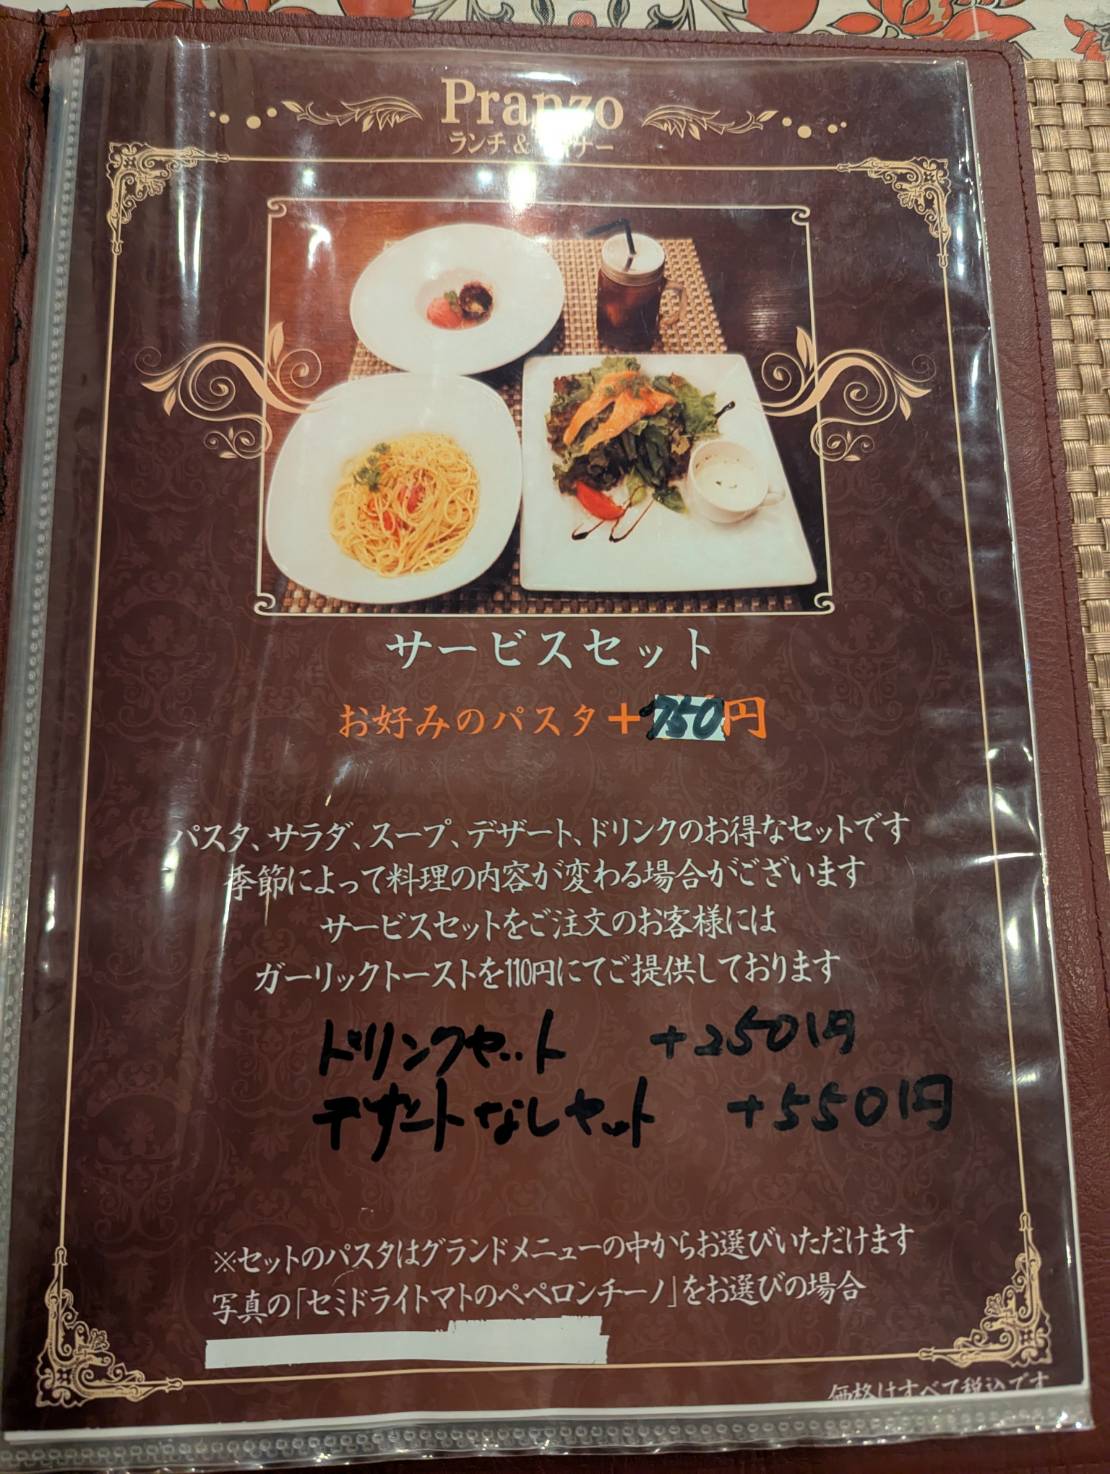 Pranzo
ランチ & ディナー
サービスセット
お好みのパスタ+750円
パスタ、サラダ、スープ、デザート、ドリンクのお得なセットです
季節によって料理の内容が変わる場合がございます
サービスセットをご注文のお客様には
ガーリックトーストを110円にてご提供しております
ドリンクセット +250円
デザートなしセット +550円
※セットのパスタはグランドメニューの中からお選びいただけます
写真の「セミドライトマトのペペロンチーノ」をお選びの場合
価格はすべて税込です